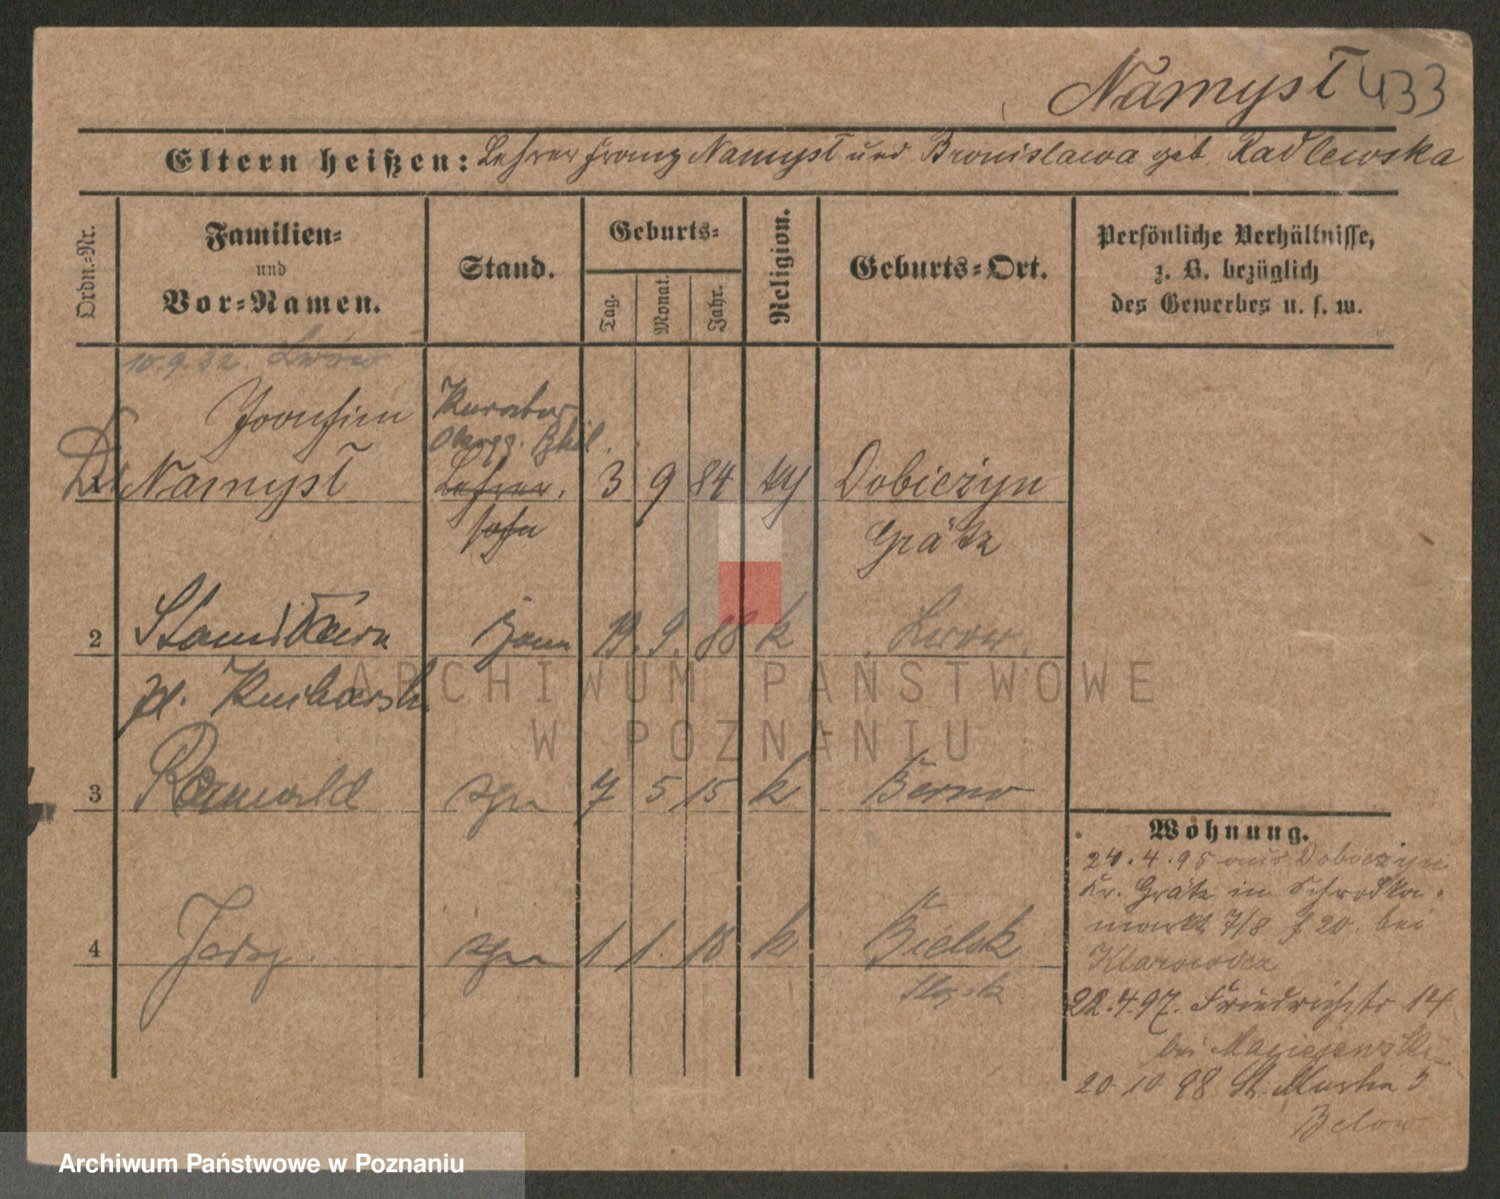 Namysł 433
Eltern heißen: Lehrer Franz Namysł und Bronislawa geb. Radlewska
Ordn.-Nr.
Familien-
und
Vor-Namen.
Stand.
Geburts-
Tag.
Monat.
Jahr.
Religion.
Geburts-Ort.
Persönliche Verhältnisse,
z. B. bezüglich
des Gewerbes u. s. w.
10.9.22. Lwów
Joachim Kurator
Dr Namysł Lehrer 3 9 84 Dobieżyn
sohn Grätz
2 Stanisława żona 19. 9. 88 k Lwów
3 Romuald syn 7 5 15 k Berno
4 Jerzy. syn 1 1. 18 k Bielsk
Wohnung.
24.4.95 aus Dobieżyn
Kr. Grätz in Schrodka-
markt 7/8 bei
22.4.97. Friedrichstr 14
bei Maciejewski
20.10.98 St. Martin 5
Below
ARCHIWUM PAŃSTWOWE
W POZNANIU
Archiwum Państwowe w Poznaniu